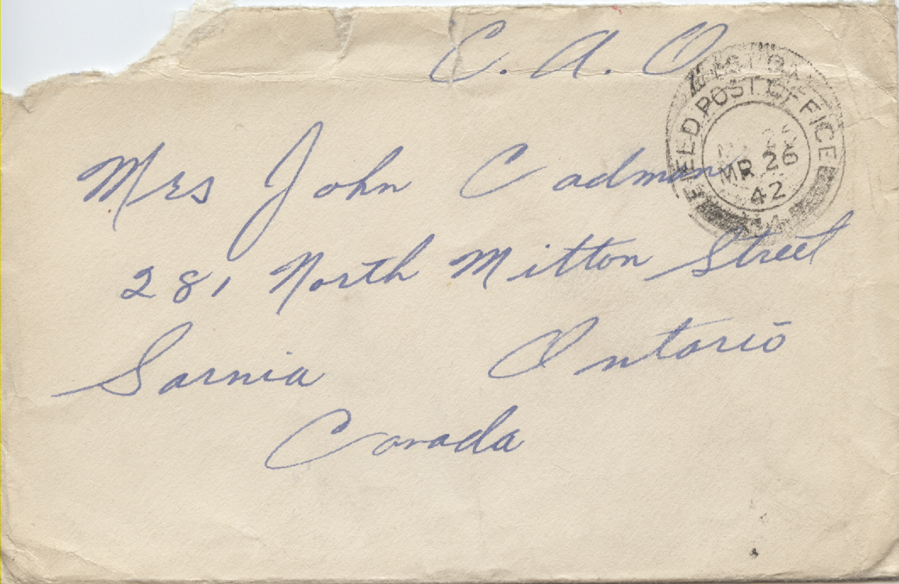 C. A. O
FIELD POST OFFICE
MR 26
42
Mrs John Cadman
281 North Mitton Street
Sarnia Ontario
Canada